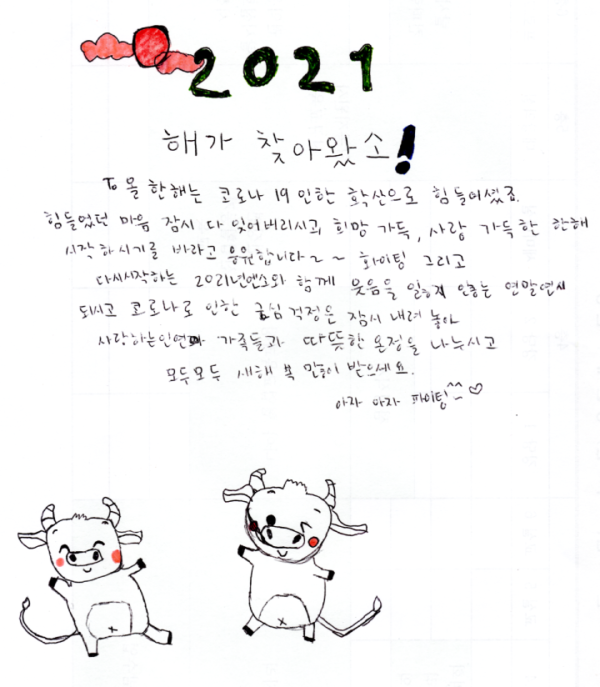 2021
해가 찾아왔소!
To 올 한해는 코로나 19 인한 확산으로 힘들어셨죠.
힘들었던 마음 잠시 다 잊어버리시고, 희망 가득, 사랑 가득한 한해
시작하시기를 바라고 응원합니다~ ~ 화이팅 그리고
다시시작하는 2021년엔소와 함께 웃음을 잃하지 안흔는 연말연시
되시고 코로나로 인한 근심 걱정은 잠시 내려 놓아
사랑하는인연과 가족들과 따뜻한 온정을 나누시고
모두모두 새해 복 많이 받으세요.
아자 아자 파이팅^^~♡